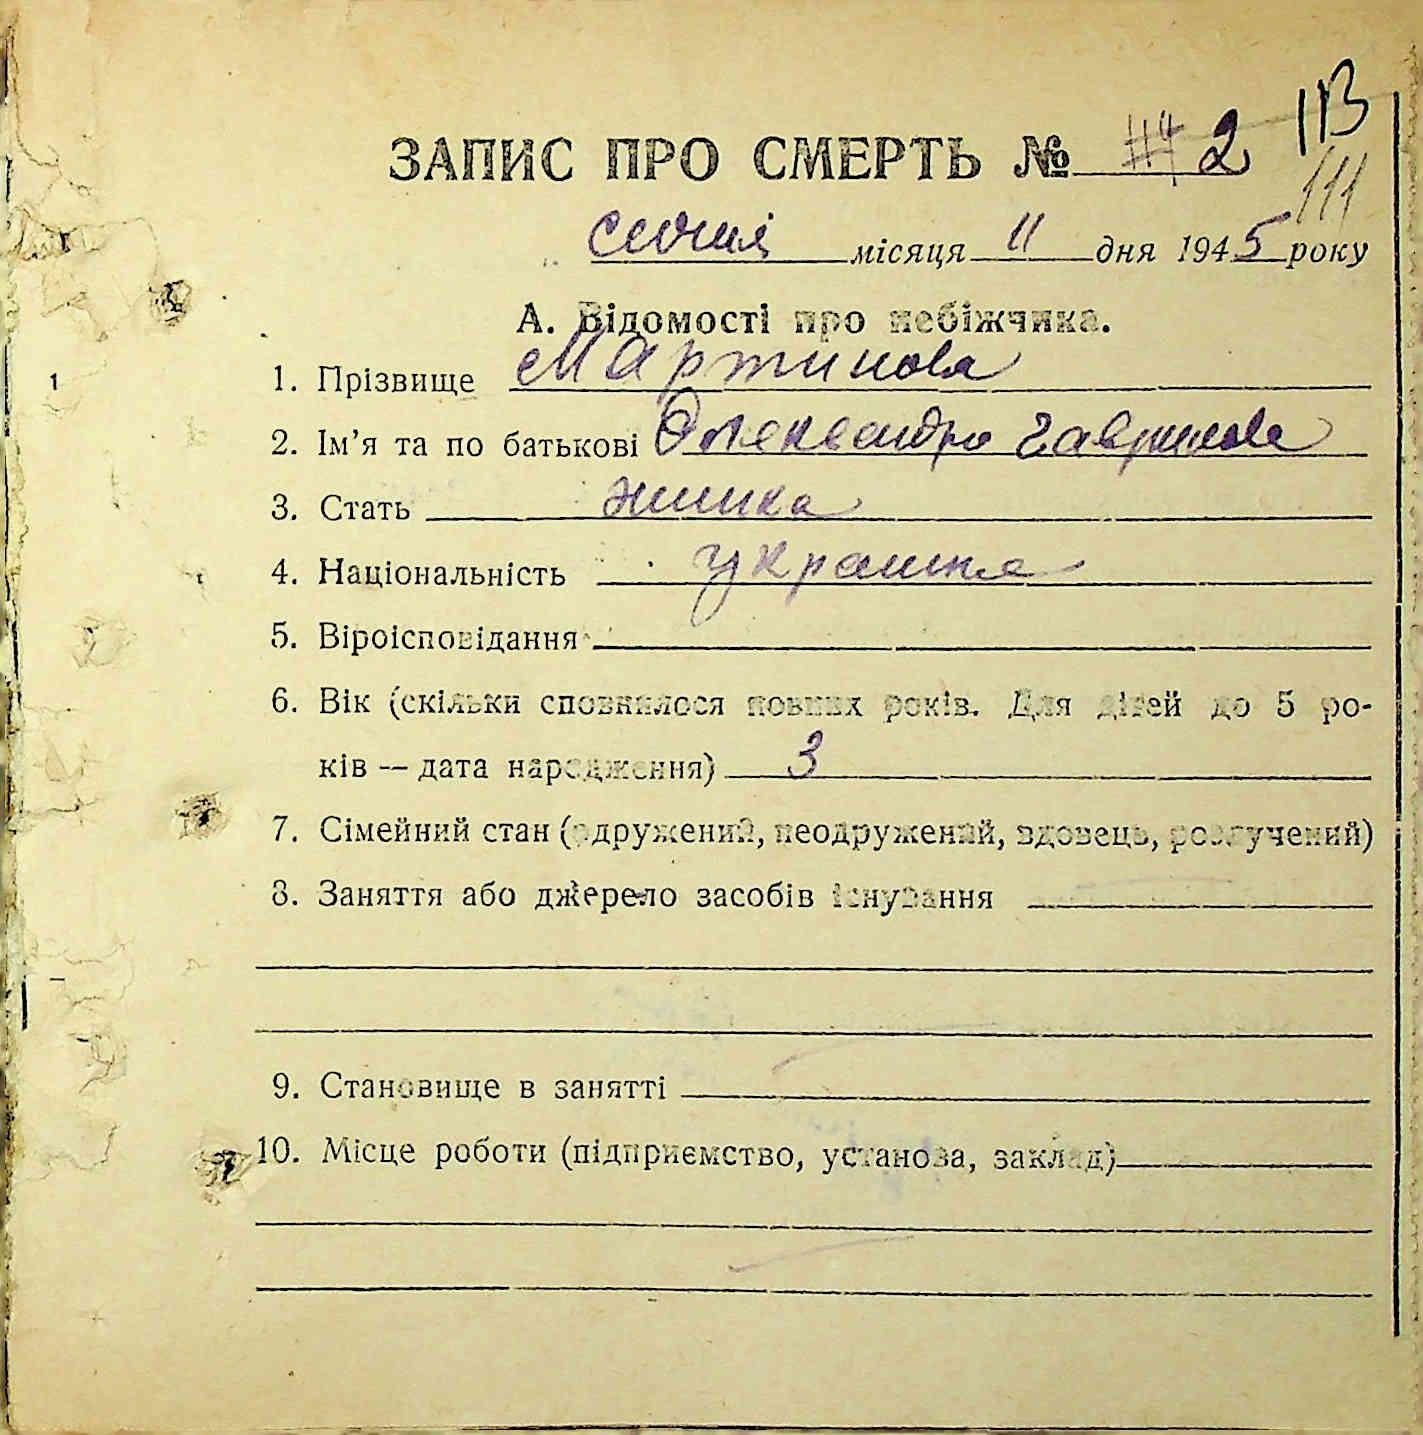 113
ЗАПИС ПРО СМЕРТЬ № 2
111
січня місяця 11 дня 1945 року
А. Відомості про небіжчика.
1. Прізвище Мартинова
2. Ім’я та по батькові Олександра
3. Стать жінка
4. Національність українка
5. Віроісповідання
6. Вік (скільки сповнилося повних років. Для дітей до 5 ро-
ків — дата народження) 3
7. Сімейний стан (одружений, неодружений, вдовець, розлучений)
8. Заняття або джерело засобів існування
9. Становище в занятті
10. Місце роботи (підприємство, установа, заклад)